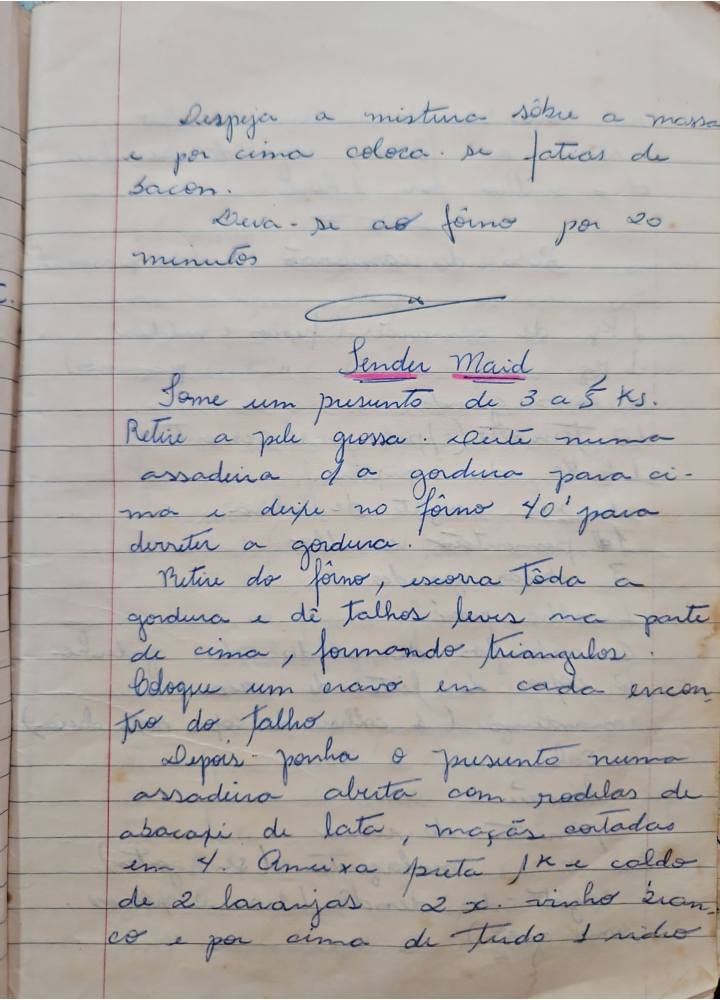 Despeja a mistura sôbre a massa
e por cima coloca-se fatias de
bacon.
Leva-se ao fôrno por 20
minutos
Tender Maid
Tome um presunto de 3 a 5 Ks.
Retire a pele grossa. Deite numa
assadeira c/ a gordura para ci-
ma e deixe no fôrno 40' para
derreter a gordura.
Retire do fôrno, escorra tôda a
gordura e dê talhos leves na parte
de cima, formando triangulos.
Coloque um cravo em cada encon-
tro do talho
Depois ponha o presunto numa
assadeira aberta com rodelas de
abacaxi de lata, maçãs cortadas
em 4. Ameixa preta 1 K e caldo
de 2 laranjas 2 x. vinho bran-
co e por cima de tudo 1 vidro